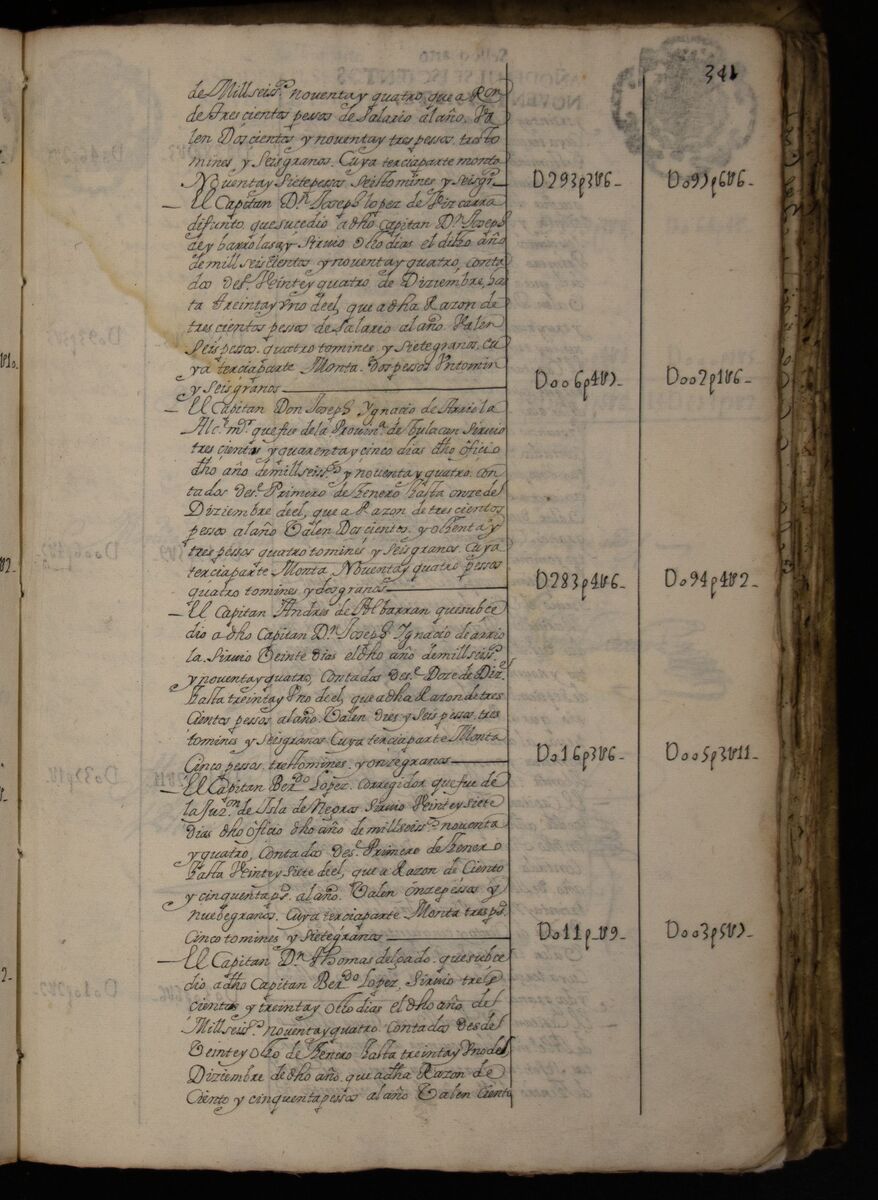 341
de Mill seisº. noventa y quatro, que a Ron
de tres cientos pessos de Salario al año. Va
len Doscientos y noventa y tres pessos. tres to
mines y seis granos. Cuya tercia parte monta
Noventa y siete pessos seis tomines y seis grs D293p3U6 D097p6U6
El Capitan Dn. Joseph lopez de Pizcarra
difunto, que sucedio a dho Capitan Dn. Joseph
de y barrolasa, y sirvio ocho dias el dicho año
de mill seiscientos y noventa y quatro, conta
dos desde Veinte y quatro de Diziembre, has
ta treinta y Uno de el, que a dha Razon de
tres cientos pessos de salario al año. Valen
seis pesos. quatro tomines. y siete granos, cu
ya tercia parte Monta dos pessos Un tomin
y seis granos D006p4U7 D002p1U6
El Capitan Don Joseph Ygnacio de Arriola
Alce. mor. que fue de la Provina. de Tulacan Sirvio
tres cientos y quarenta y cinco dias dho officio
dho año de mill seisº. y noventa y quatro. con
tados desde Primero de henero hasta onze del
Diziembre de el, que a Razon de tres cientos
pessos al año Valen Doscientos. y ochenta y
tres pessos quatro tomines y seis granos. Cuya
tercia parte Monta Noventa y quatro pessos
quatro tomines y dos granos D283p4U6 D094p4U2
El Capitan Andres de Albarran que subce
dio a dho Capitan Dn. Joseph Ygnacio de arrio
la. Sirvio Veinte dias el dho año de mill seisº.
y noventa y quatro, Contados desde Doze de Dize.
hasta treinta y Uno de el, que a dha Razon de tres
cientos pessos al año. Valen dies y seis pessos. tres
tomines y seis granos Cuya tercia parte Monta
Cinco pessos. tres tomines. y onze granos D016p3U6 D005p3U11
El Capitan Berdo. Lopez. Corregidor que fue de
la Juron. de Isla de Negros sirvio Veinte y siete
dias dho officio dho año de mill seisº. noventa
y quatro, Contados desde Primero de henero
hasta Veinte y siete de el, que a Razon de Ciento
y cinquenta ps. al año. Valen onze pessos y
nueve granos. Cuya tercia parte Monta tres ps.
Cinco tomines y siete granos D011p_U9 D003p5U7
El Capitan Dn. Thomas delgado. que subce
dio a dho Capitan Berdo. Lopez, Sirvio tres
cientos y treinta y ocho dias el dho año del
Mill seisº. noventa y quatro. Contados desdel
Veinte y ocho de henero hasta treinta y Uno del
Diziembre de dho año. que a dha Razon de
Ciento y cinquenta pessos al año Valen Ciento